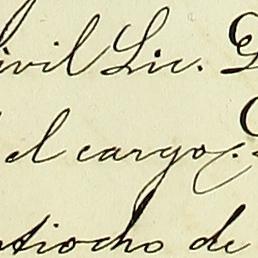 ivil Lic.
el cargo.
ntiocho de